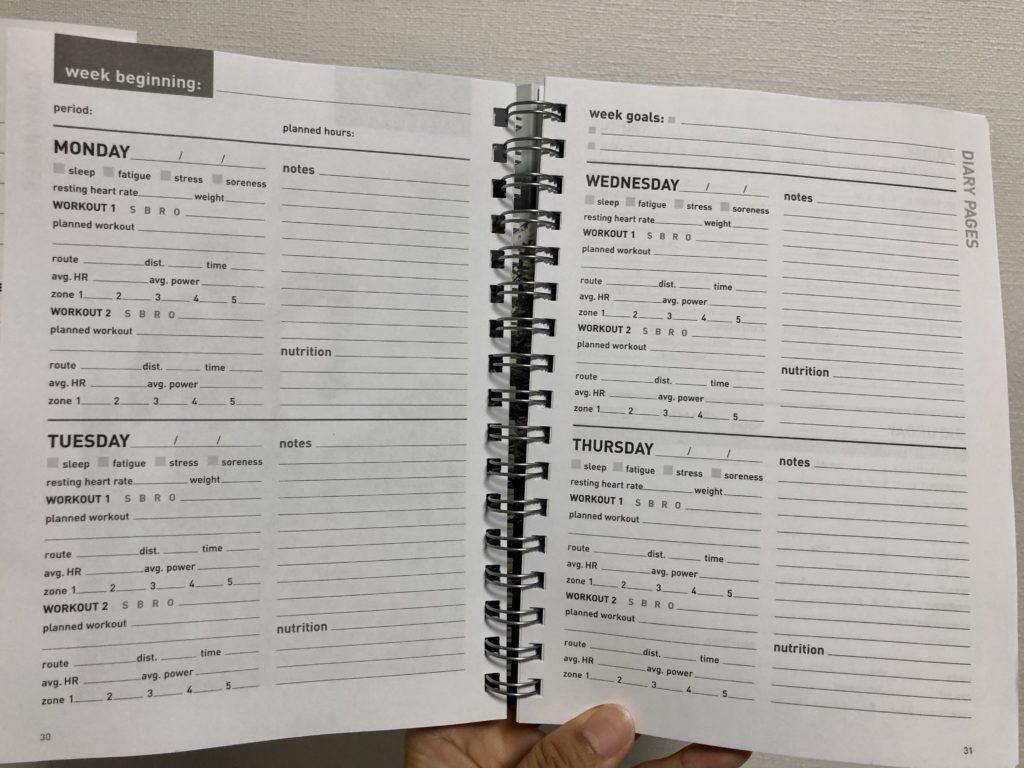 week beginning:
period:
planned hours:
MONDAY / /
sleep fatigue stress soreness
resting heart rate weight
WORKOUT 1 S B R O
planned workout
route dist. time
avg. HR avg. power
zone 1 2 3 4 5
WORKOUT 2 S B R O
planned workout
route dist. time
avg. HR avg. power
zone 1 2 3 4 5
notes
nutrition
TUESDAY / /
sleep fatigue stress soreness
resting heart rate weight
WORKOUT 1 S B R O
planned workout
route dist. time
avg. HR avg. power
zone 1 2 3 4 5
WORKOUT 2 S B R O
planned workout
route dist. time
avg. HR avg. power
zone 1 2 3 4 5
notes
nutrition
30
week goals:
DIARY PAGES
WEDNESDAY / /
sleep fatigue stress soreness
resting heart rate weight
WORKOUT 1 S B R O
planned workout
route dist. time
avg. HR avg. power
zone 1 2 3 4 5
WORKOUT 2 S B R O
planned workout
route dist. time
avg. HR avg. power
zone 1 2 3 4 5
notes
nutrition
THURSDAY / /
sleep fatigue stress soreness
resting heart rate weight
WORKOUT 1 S B R O
planned workout
route dist. time
avg. HR avg. power
zone 1 2 3 4 5
WORKOUT 2 S B R O
planned workout
route dist. time
avg. HR avg. power
zone 1 2 3 4 5
notes
nutrition
31